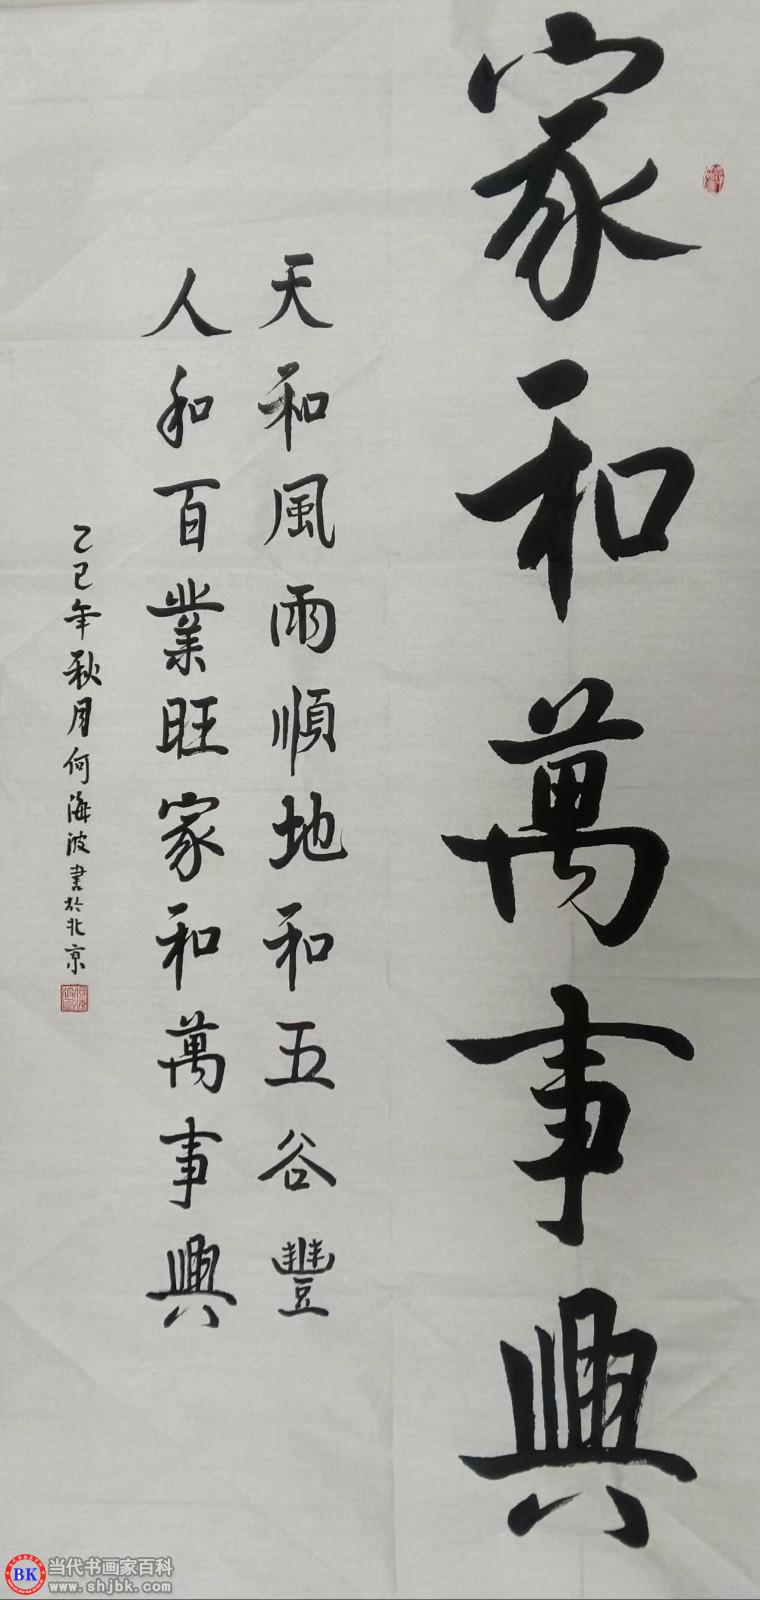 家和萬事興
天和風雨順地和五谷豐
人和百業旺家和萬事興
乙巳年秋月何海波書於北京
BK 当代书画家百科
www.shjbk.com